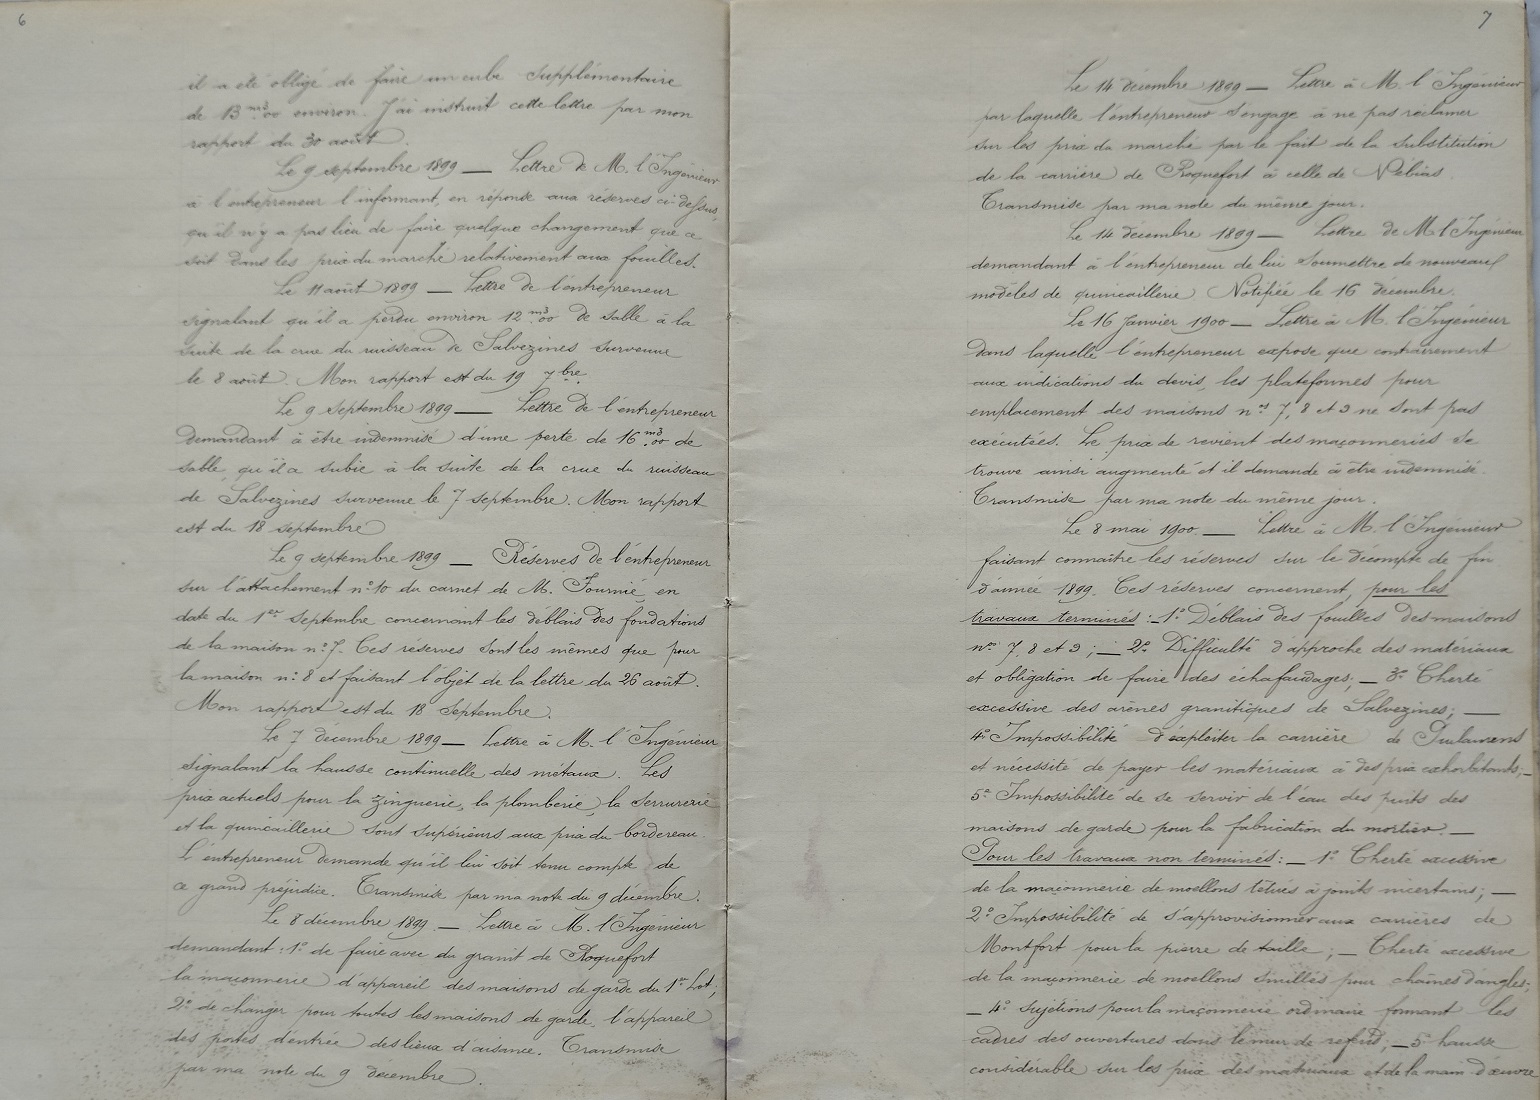 6
il a été obligé de faire un cube supplémentaire
de 13 m3.00 environ. J'ai instruit cette lettre par mon
rapport du 30 août.
Le 9 septembre 1899 — Lettre de M. l'Ingénieur
à l'entrepreneur l'informant, en réponse aux réserves ci-dessus,
qu'il n'y a pas lieu de faire quelque changement que ce
soit dans les prix du marché relativement aux fouilles.
Le 11 août 1899 — Lettre de l'entrepreneur
signalant qu'il a perdu environ 12 m3.00 de sable à la
suite de la crue du ruisseau de Salvezines survenue
le 8 août. Mon rapport est du 19 7bre.
Le 9 septembre 1899 — Lettre de l'entrepreneur
demandant à être indemnisé d'une perte de 16 m3.00 de
sable, qu'il a subie à la suite de la crue du ruisseau
de Salvezines survenue le 7 septembre. Mon rapport
est du 18 septembre
Le 9 septembre 1899 — Réserves de l'entrepreneur
sur l'attachement n° 10 du carnet de M. Fournié, en
date du 1er septembre concernant les déblais des fondations
de la maison n° 7. Ces réserves sont les mêmes que pour
la maison n° 8 et faisant l'objet de la lettre du 26 août.
Mon rapport est du 18 Septembre.
Le 7 décembre 1899 — Lettre à M. l'Ingénieur
signalant la hausse continuelle des métaux. Les
prix actuels pour la zinguerie, la plomberie, la serrurerie
et la quincaillerie sont supérieurs aux prix du bordereau.
L'entrepreneur demande qu'il lui soit tenu compte de
ce grand préjudice. Transmise par ma note du 9 décembre.
Le 8 décembre 1899 — Lettre à M. l'Ingénieur
demandant : 1° de faire avec du granit de Roquefort
la maçonnerie d'appareil des maisons de garde du 1er Lot;
2° de changer pour toutes les maisons de garde, l'appareil
des portes d'entrée des lieux d'aisance. Transmise
par ma note du 9 décembre.
7
Le 14 décembre 1899 — Lettre à M. l'Ingénieur
par laquelle l'entrepreneur s'engage à ne pas réclamer
sur les prix du marché par le fait de la substitution
de la carrière de Roquefort à celle de Nébias.
Transmise par ma note du même jour.
Le 14 décembre 1899 — Lettre de M l'Ingénieur
demandant à l'entrepreneur de lui soumettre de nouveaux
modèles de quincaillerie Notifiée le 16 décembre.
Le 16 Janvier 1900 — Lettre à M. l'Ingénieur
dans laquelle l'entrepreneur expose que contrairement
aux indications du devis, les plateformes pour
emplacement des maisons nos 7, 8 et 9 ne sont pas
exécutées. Le prix de revient des maçonneries se
trouve ainsi augmenté et il demande à être indemnisé.
Transmise par ma note du même jour.
Le 8 mai 1900. — Lettre à M. l'Ingénieur
faisant connaître les réserves sur le décompte de fin
d'année 1899. Ces réserves concernent, pour les
travaux terminés : 1° Déblais des fouilles des maisons
nos 7, 8 et 9 ; — 2° Difficulté d'approche des matériaux
et obligation de faire des échafaudages; — 3° Cherté
excessive des arènes granitiques de Salvezines; —
4° Impossibilité d'exploiter la carrière de
et nécessité de payer les matériaux à des prix exhorbitants; —
5° Impossibilité de se servir de l'eau des puits des
maisons de garde pour la fabrication du mortier. —
Pour les travaux non terminés : — 1° Cherté excessive
de la maçonnerie de moellons têtués à joints incertains; —
2° Impossibilité de s'approvisionner aux carrières de
Montfort pour la pierre de taille ; — Cherté excessive
de la maçonnerie de moellons smillés pour chaînes d'angles;
— 4° Sujétions pour la maçonnerie ordinaire formant les
cadres des ouvertures dans le mur de refend; — 5° hausse
considérable sur les prix des matériaux et de la main d'œuvre